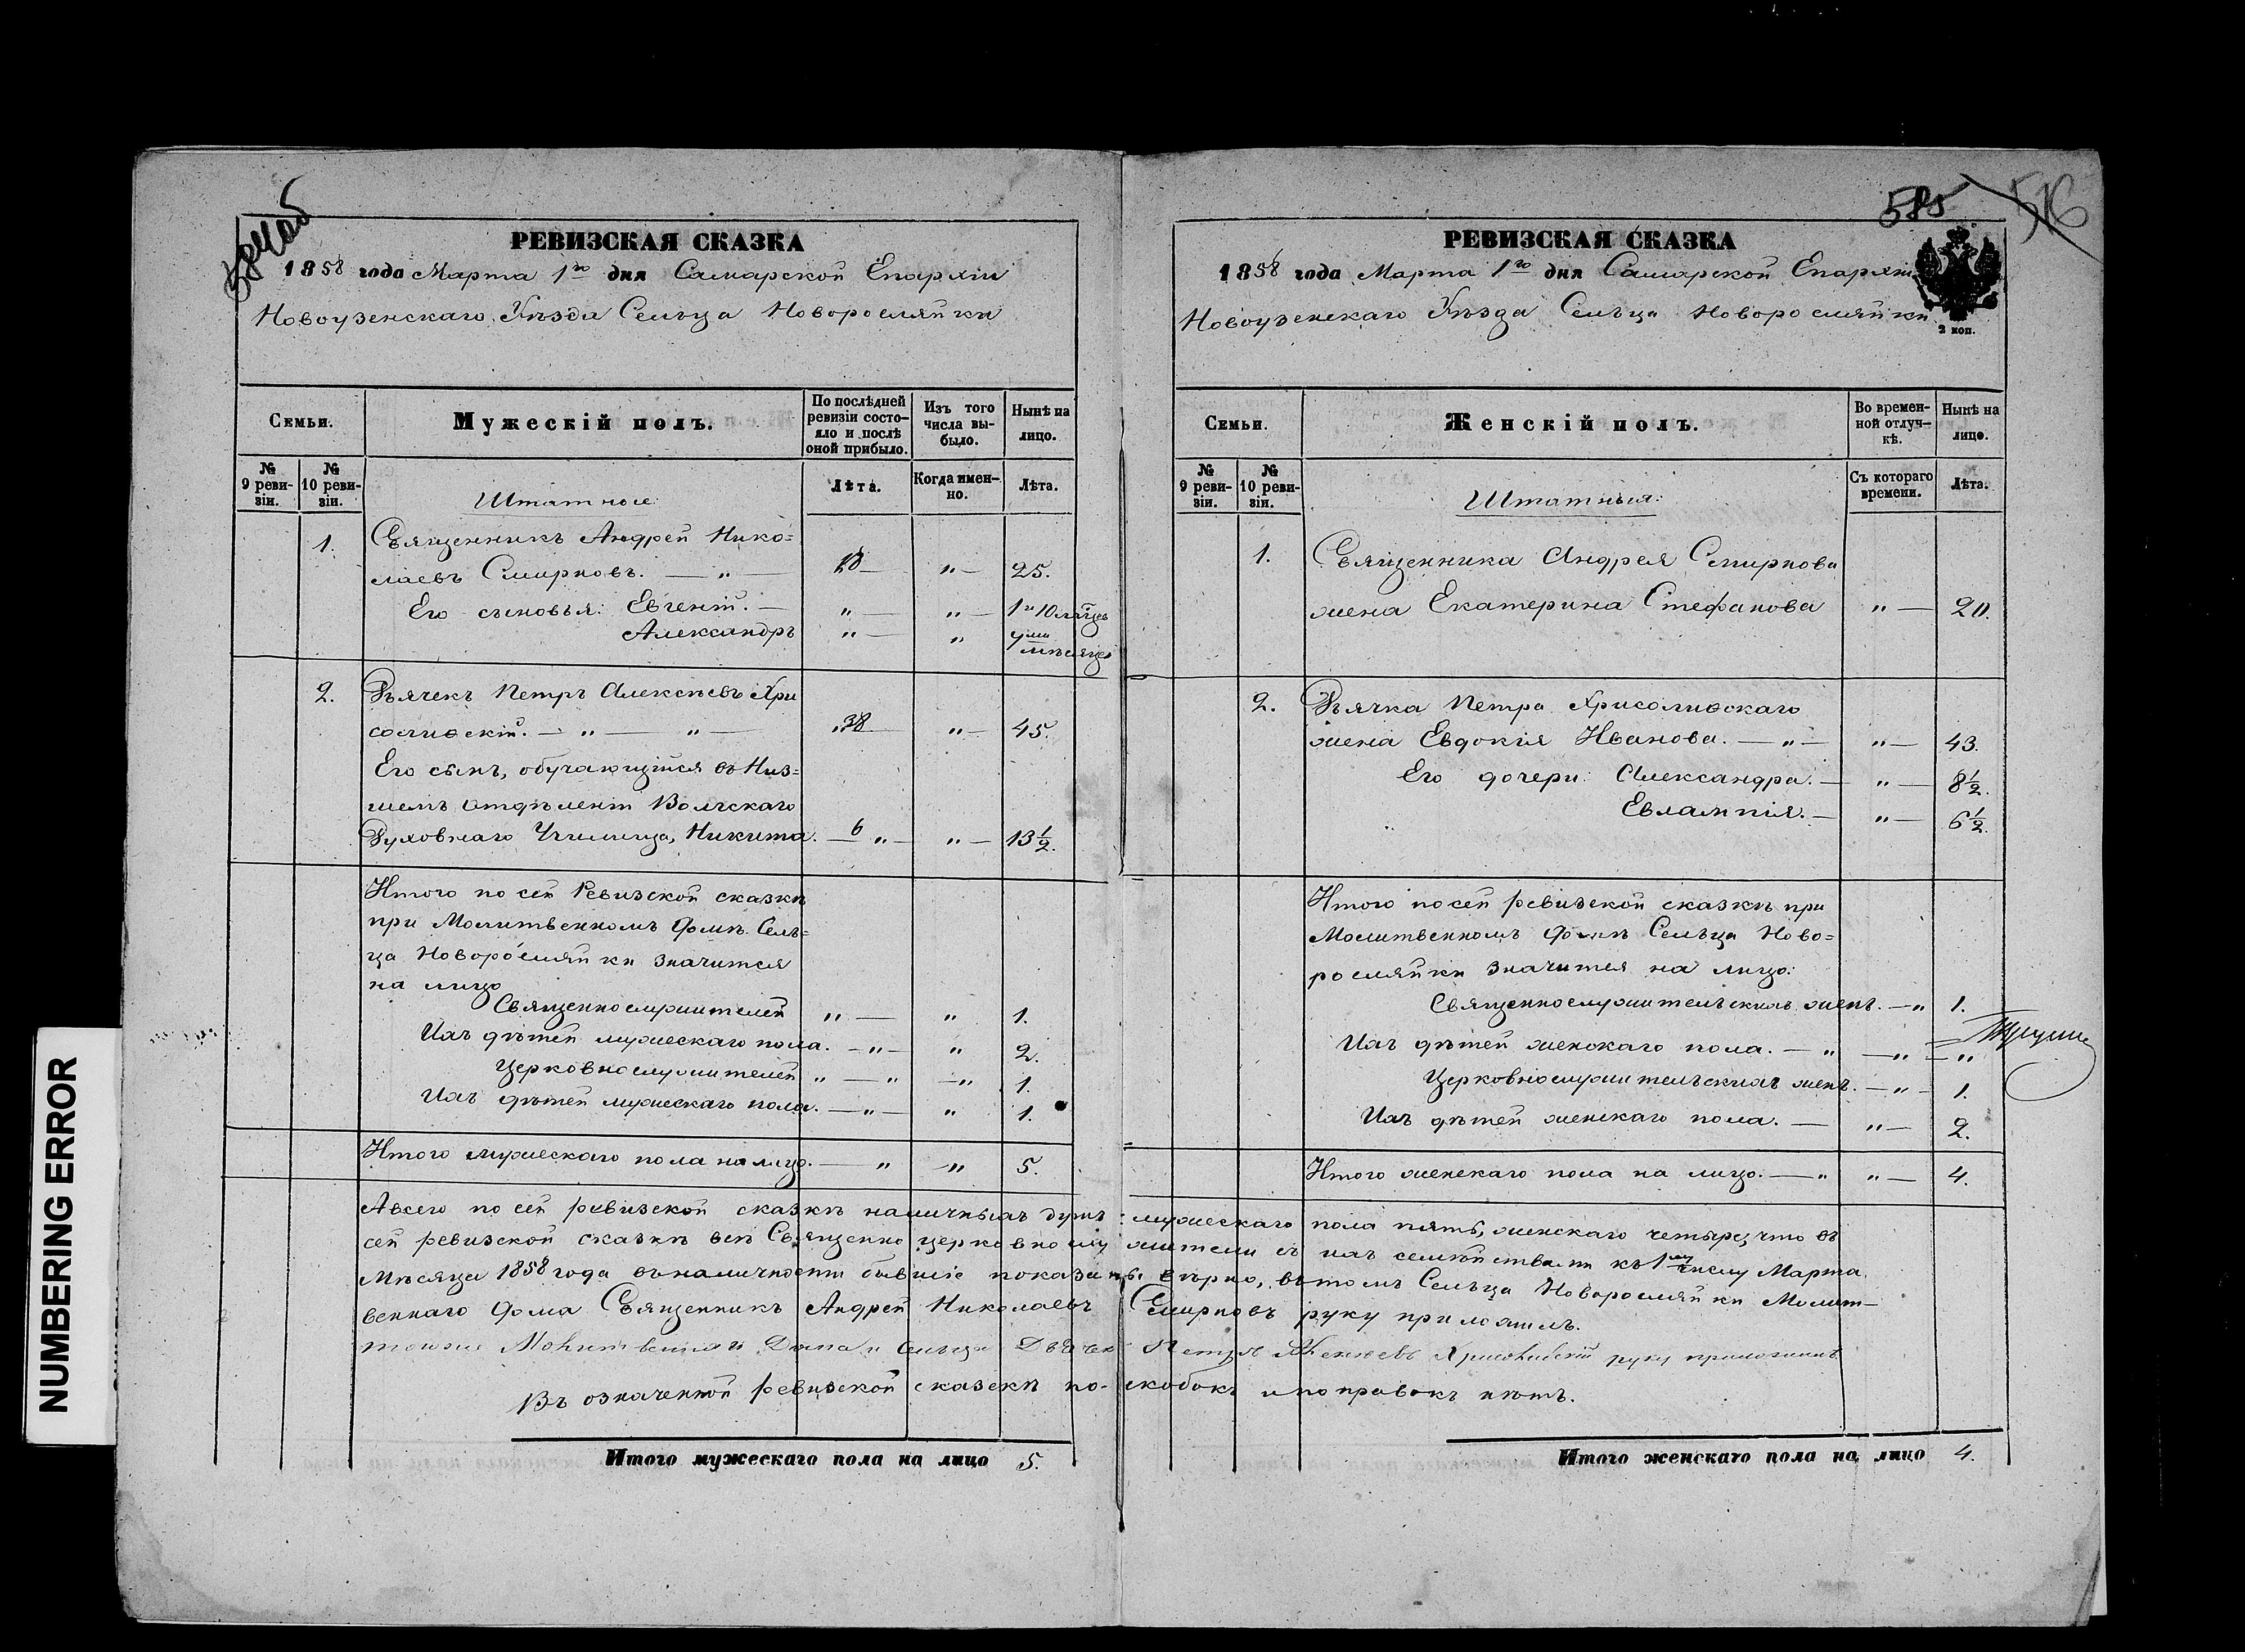 РЕВИЗСКАЯ СКАЗКА
1858 года Марта 1го дня Самарской Епархіи
Новоузенскаго Уѣзда Сельца Новоросляйки
Семьи.
Мужескій полъ.
По послѣдней ревизіи состо-
яло и послѣ оной прибыло.
Изъ того числа вы-
было.
Нынѣ на лицо.
№ 9 реви-
зіи.
№ 10 реви-
зіи.
Лѣта.
Когда имен-
но.
Лѣта.
Штатные:
1. Священникъ Андрей Нико=
лаевъ Смирновъ. — „ — 18 — „ — 25.
Его сыновья: Евгеній. — „ — „ — 1 и 10 мѣсяцъ
Александръ „ — „
мѣсяцъ
2. Дьячекъ Петръ Алексѣевъ Хри
солиѳскій. — „ — „ — 38 „ — 45.
Его сынъ, обучающійся въ Низ=
шемъ Отдѣленіи Волжскаго
Духовнаго Училища, Никита. — 6 „ — „ — 13½.
Итого по сей Ревизской сказкѣ
при Молитвенномъ домѣ Сель=
ца Новоросляйки значится
на лицо
Священнослужителей „ — „ 1.
Ихъ дѣтей мужескаго пола. — „ — „ 2.
Церковнослужителей „ — „ — „ 1.
Ихъ дѣтей мужескаго пола. — „ — „ 1.
Итого мужескаго пола на лицо. — „ — „ 5.
РЕВИЗСКАЯ СКАЗКА
1858 года Марта 1го дня Самарской Епархіи
Новоузенскаго Уѣзда Сельца Новоросляйки
585
516
2 коп.
Семьи.
Женскій полъ.
Во времен-
ной отлуч-
кѣ.
Нынѣ на лицо.
№ 9 реви-
зіи.
№ 10 реви-
зіи.
Съ котораго времени.
Лѣта.
Штатныя:
1. Священника Андрея Смирнова
жена Екатерина Стефанова „ — 20.
2. Дьячка Петра Хрисолиѳскаго
жена Евдокія Иванова. — „ — „ — 43.
Его дочери: Александра. — „ — 8½.
Евлампія. — „ — 6½.
Итого по сей ревизской сказкѣ при
Молитвенномъ домѣ Сельца Ново=
росляйки значится на лицо:
Священнослужительскихъ женъ. — „ 1.
Ихъ дѣтей женскаго пола. — „ — „ — „
Церковнослужительскихъ женъ. — „ — 1.
Ихъ дѣтей женскаго пола. — „ — 2.
Итого женскаго пола на лицо. — „ „ — 4.
А всего по сей ревизской сказкѣ наличныхъ душъ: мужескаго пола пять, женскаго четыре, что въ
сей ревизской сказкѣ всѣ Священно церковнослужители съ ихъ семействами къ 1му числу Марта
Мѣсяца 1858 года въ наличности бывшіе показаны вѣрно, въ томъ Сельца Новоросляйки Молит-
веннаго дома Священникъ Андрей Николаевъ Смирновъ руку приложилъ.
тогоже Молитвеннаго Дома Сельца Дьячекъ Петръ Алексѣевъ Хрисолиѳскій руку приложилъ
Въ означенной ревизской сказкѣ по- скобокъ и поправокъ нѣтъ.
Итого мужескаго пола на лицо 5.
Итого женскаго пола на лицо 4.
NUMBERING ERROR